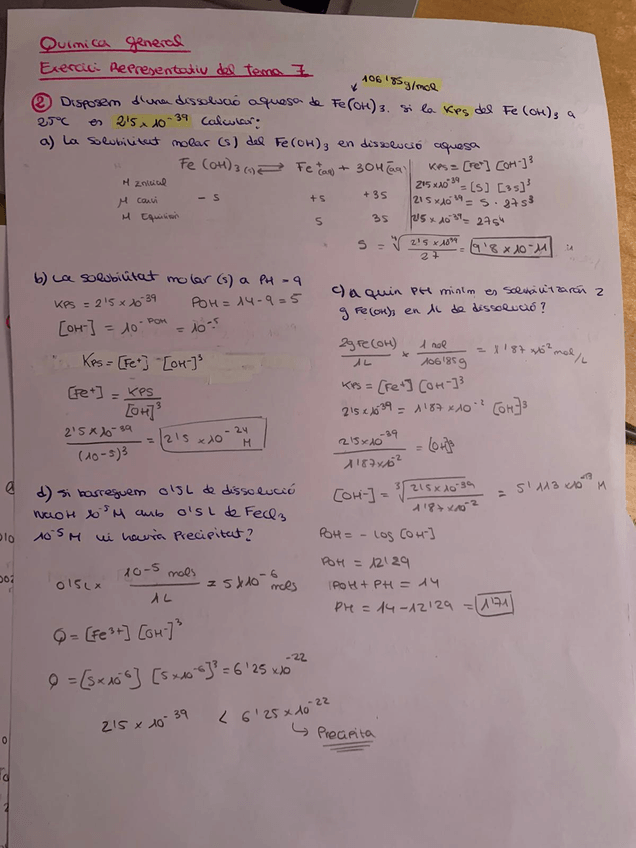 Química general
Exercici Representatiu del tema 7
106'85g/mol
② Disposem d'una dissolució aquosa de Fe(OH)3. Si la KPS del Fe(OH)3 a
25ºC es 2'5 x 10^-39 calcular:
a) La solubilitat molar (s) del Fe(OH)3 en dissolució aquosa
Fe(OH)3(s) ⇌ Fe+(aq) + 3OH-(aq)
M Inicial
M canvi - s +s +3s
M Equilibri s 3s
KPS = [Fe+] [OH-]^3
2'5x10^-39 = [s] [3s]^3
2'5 x 10^-39 = s · 27s^3
2'5 x 10^-39 = 27s^4
s = ⁴√(2'5 x 10^-39 / 27) = 9'8 x 10^-11
b) La solubilitat molar (s) a PH = 9
KPS = 2'5 x 10^-39 POH = 14 - 9 = 5
[OH-] = 10^-POH = 10^-5
KPS = [Fe+] · [OH-]^3
[Fe+] = KPS / [OH]^3
2'5 x 10^-39 / (10-5)^3 = 2'5 x 10^-24 M
c) A quin PH mínim es solubilitzaran 2
g Fe(OH)3 en 1L de dissolució?
2g Fe(OH) / 1L x 1 mol / 106'85g = 1'87 x10^-2 mol/L
KPS = [Fe+] [OH-]^3
2'5 x 10^-39 = 1'87 x 10^-2 [OH]^3
2'5 x 10^-39 / 1'87x10^-2 = [OH]^3
[OH-] = ³√(2'5 x 10^-39 / 1'87 x 10^-2) = 5'113 x10^-13 M
POH = - log [OH-]
POH = 12'29
POH + PH = 14
PH = 14 - 12'29 = 1'71
d) Si barregem 0'5L de dissolució
NaOH 10^-5 M amb 0'5L de FeCl3
10^-5 M hi hauria Precipitat?
0'5L x 10-5 mols / 1L = 5 x 10^-6 mols
Q = [Fe3+] [OH-]^3
Q = [5x10^-6] [5 x10^-6]^3 = 6'25 x10^-22
2'5 x 10^-39 < 6'25 x 10^-22
↳ Precipita